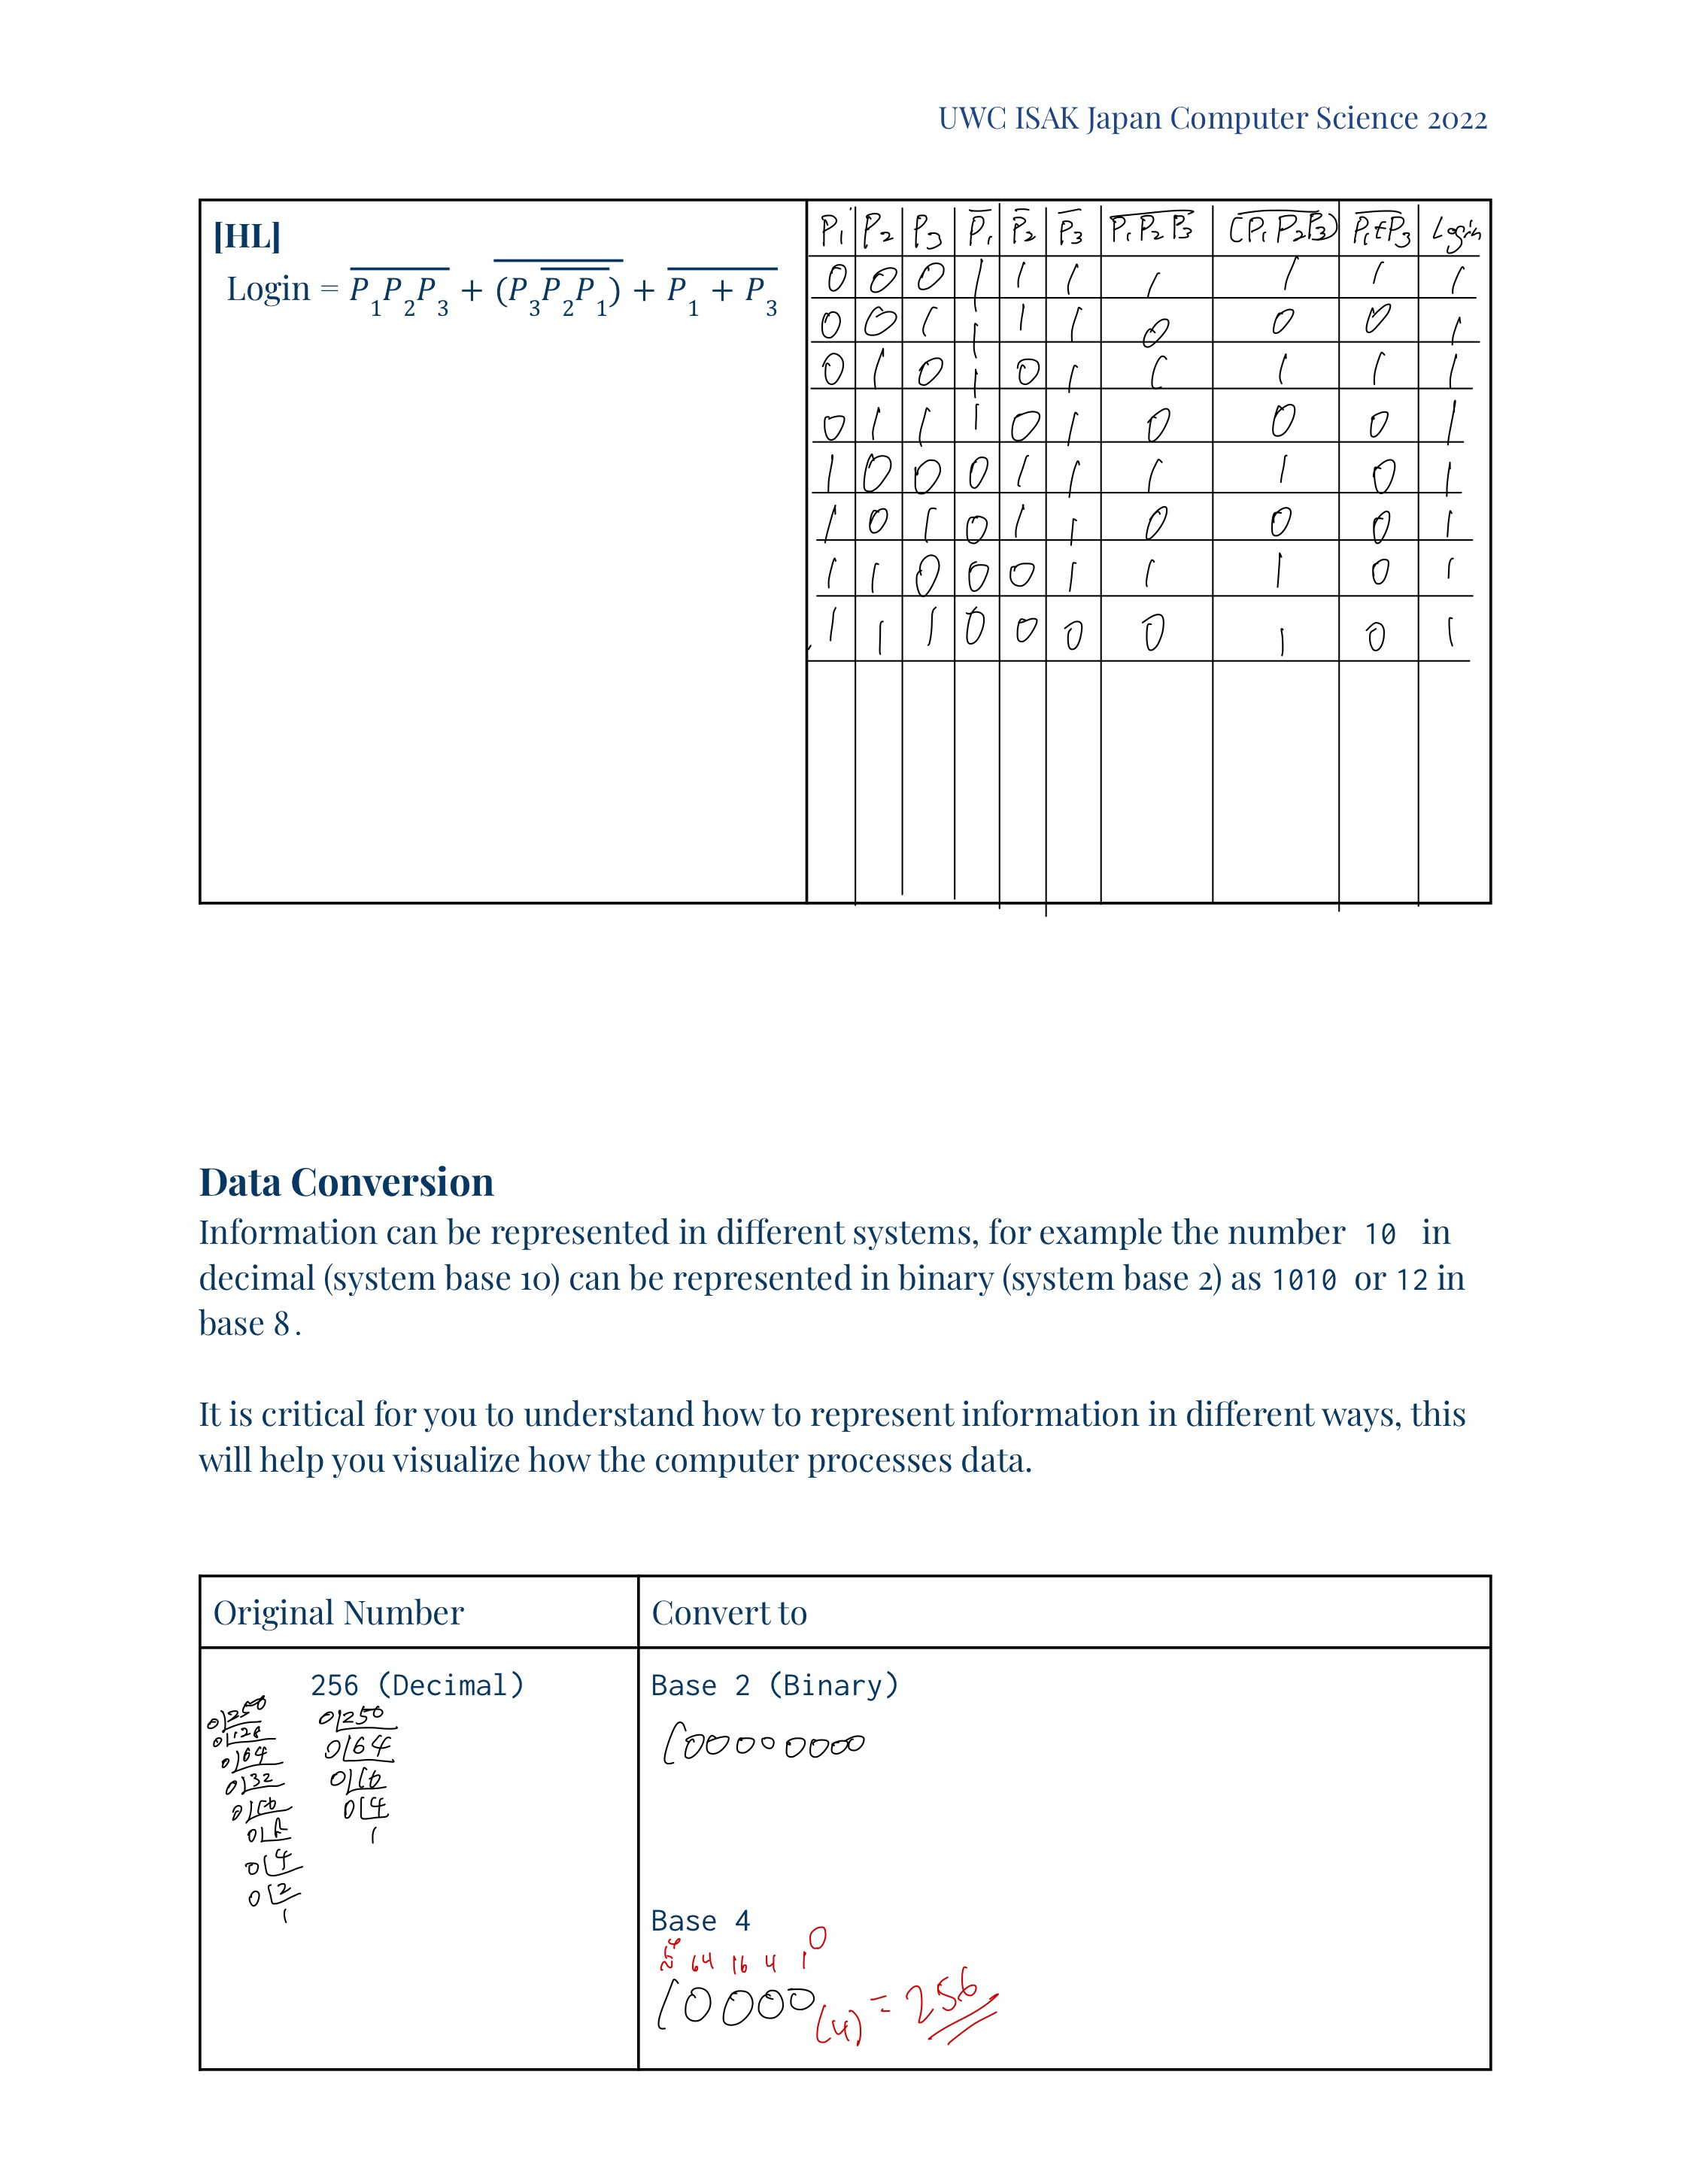 UWC ISAK Japan Computer Science 2022
[HL]
Login = P̅₁P̅₂P̅₃ + (P₃P₂P₁) + P₁ + P₃
P₁ P₂ P₃ P̅₁ P̅₂ P̅₃ P₁P₂P₃ (P₁P₂P₃) P₁+P₃ Login
0 0 0 1 1 1 1 1 1 1
0 0 1 1 1 1 0 0 0 1
0 1 0 1 0 1 1 1 1 1
0 1 1 1 0 1 0 0 0 1
1 0 0 0 1 1 1 1 0 1
1 0 1 0 1 1 0 0 0 1
1 1 0 0 0 1 1 1 0 1
1 1 1 0 0 0 0 1 0 1
Data Conversion
Information can be represented in different systems, for example the number 10 in
decimal (system base 10) can be represented in binary (system base 2) as 1010 or 12 in
base 8.
It is critical for you to understand how to represent information in different ways, this
will help you visualize how the computer processes data.
Original Number
Convert to
256 (Decimal)
0|256
0|128
0|64
0|32
0|16
0|8
0|4
0|2
1
0|256
0|64
0|16
0|4
1
Base 2 (Binary)
100000000
Base 4
0
256 64 16 4 1
10000(4) = 256